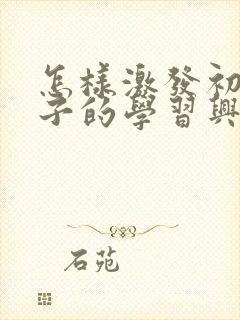 怎樣激發初
子的學習興
石苑